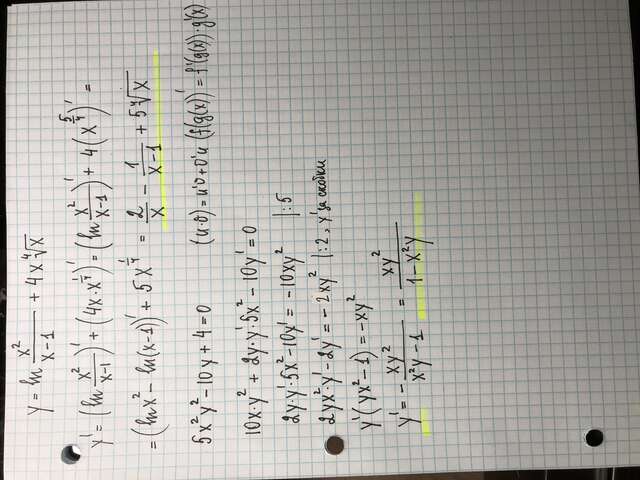 y = ln x²/(x-1) + 4x ⁴√x
y' = (ln x²/(x-1))' + (4x·x^(1/4))' = (ln x²/(x-1))' + 4(x^(5/4))' =
= (ln x² - ln(x-1))' + 5x^(1/4) = 2/x - 1/(x-1) + 5 ⁴√x
5x²y² - 10y + 4 = 0 (u·v) = u'v + v'u (f(g(x))' = f'(g(x))·g'(x)
10x·y² + 2y·y'·5x² - 10y' = 0
2y·y'·5x² - 10y' = -10xy² |:5
2yx²·y' - 2y' = -2xy² |:2, y' за скобки
y'(yx² - 1) = -xy²
y' = - xy²/(x²y - 1) = xy²/(1 - x²y)